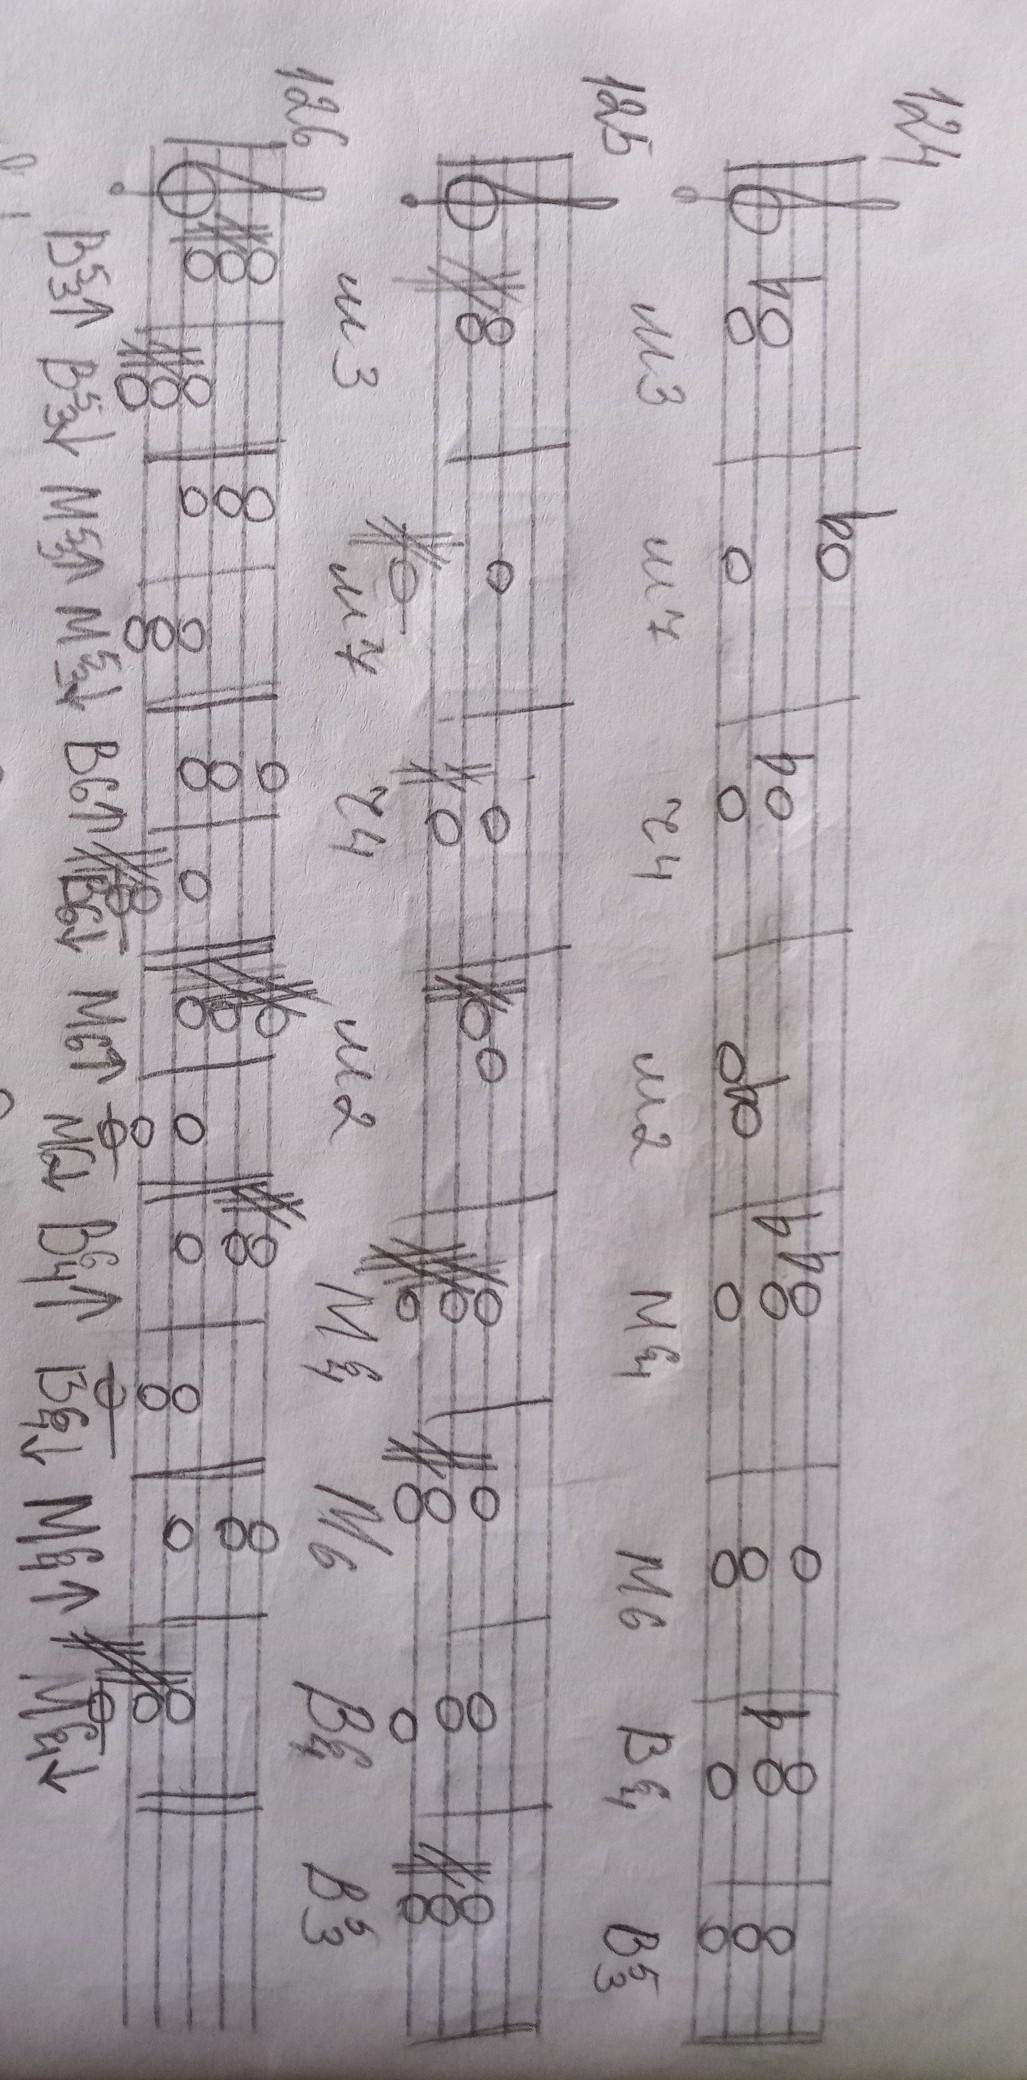 124
м3 м7 ч4 м2 М6/4 М6 Б6/4 Б5/3
125
м3 м7 ч4 м2 М6/4 М6 Б6/4 Б5/3
126
Б5/3↑ Б5/3↓ М5/3↑ М5/3↓ Б6↑ Б6↓ М6↑ М6↓ Б6/4↑ Б6/4↓ М6/4↑ М6/4↓